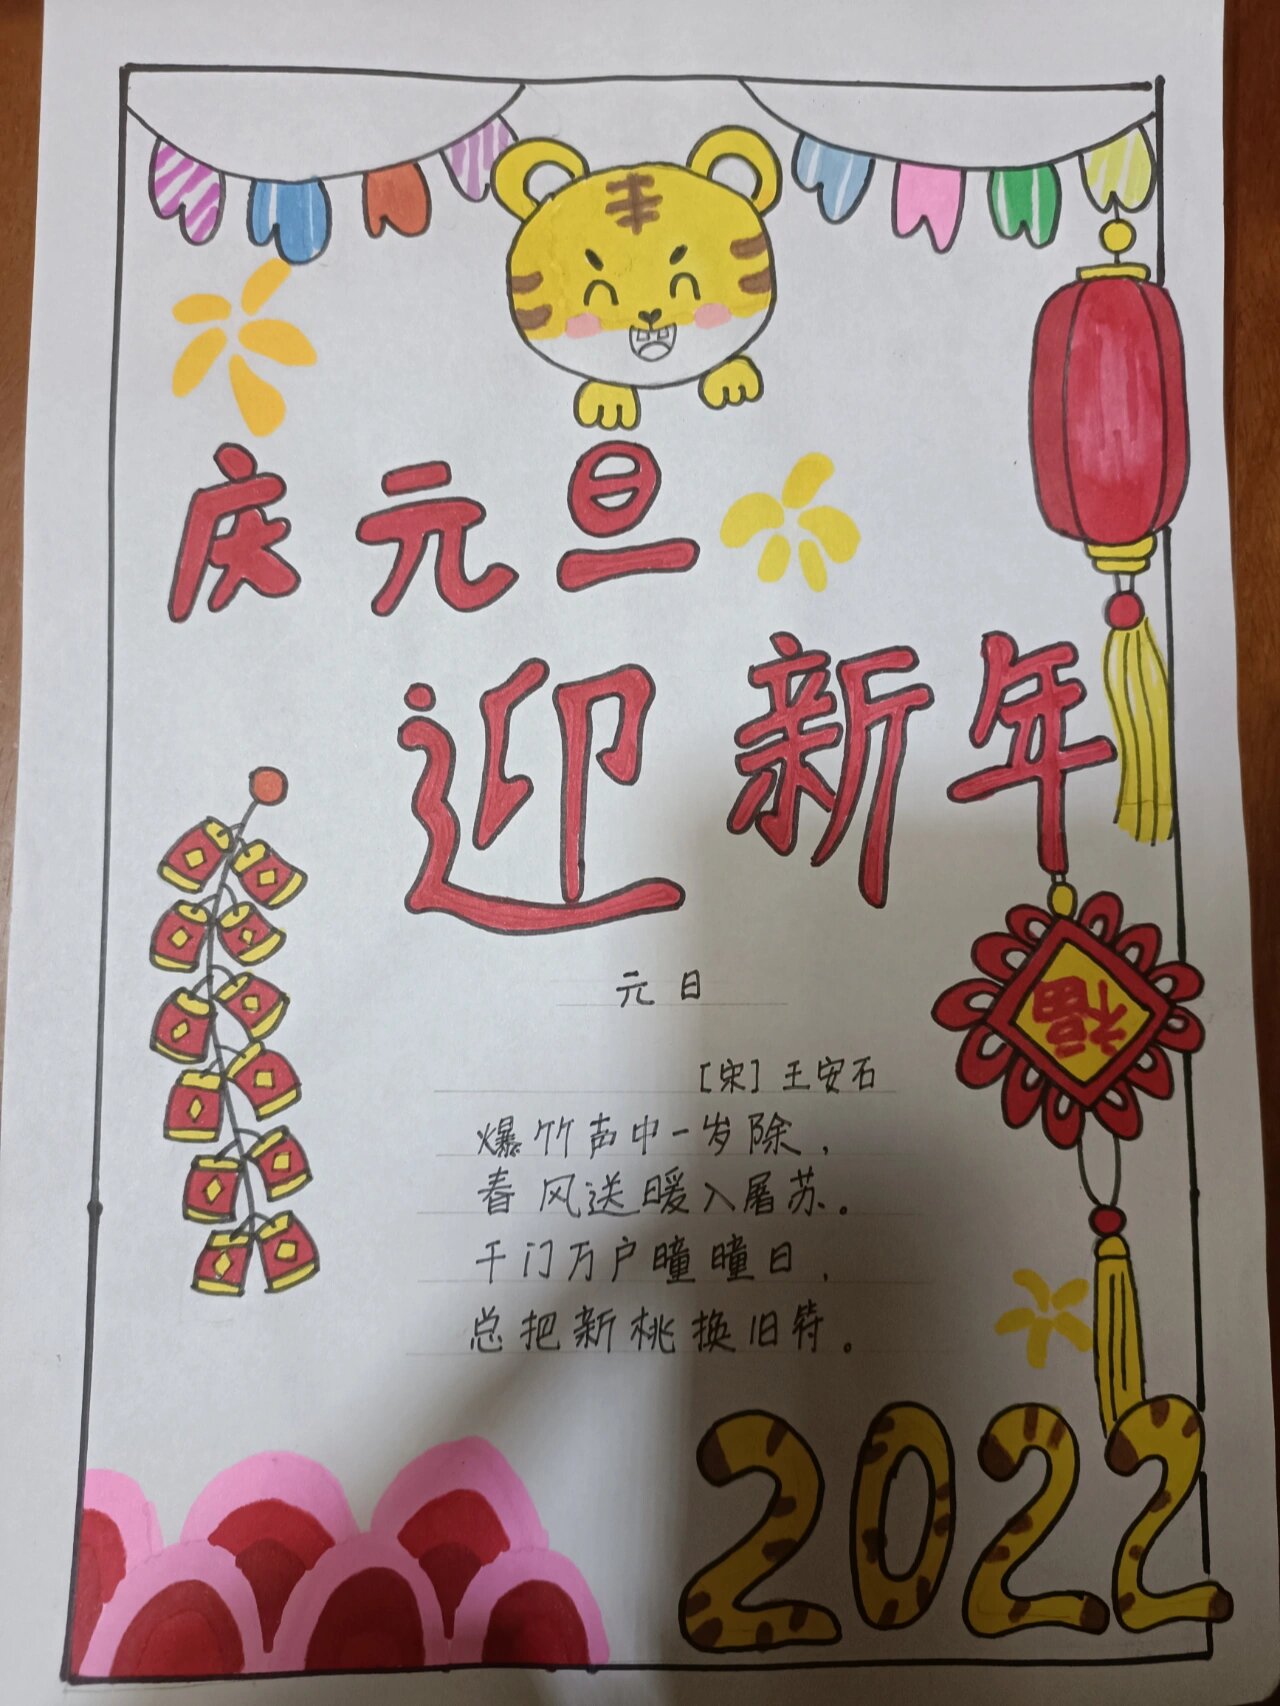 庆元旦
迎新年
福
元日
[宋]王安石
爆竹声中一岁除,
春风送暖入屠苏。
千门万户曈曈日,
总把新桃换旧符。
2022